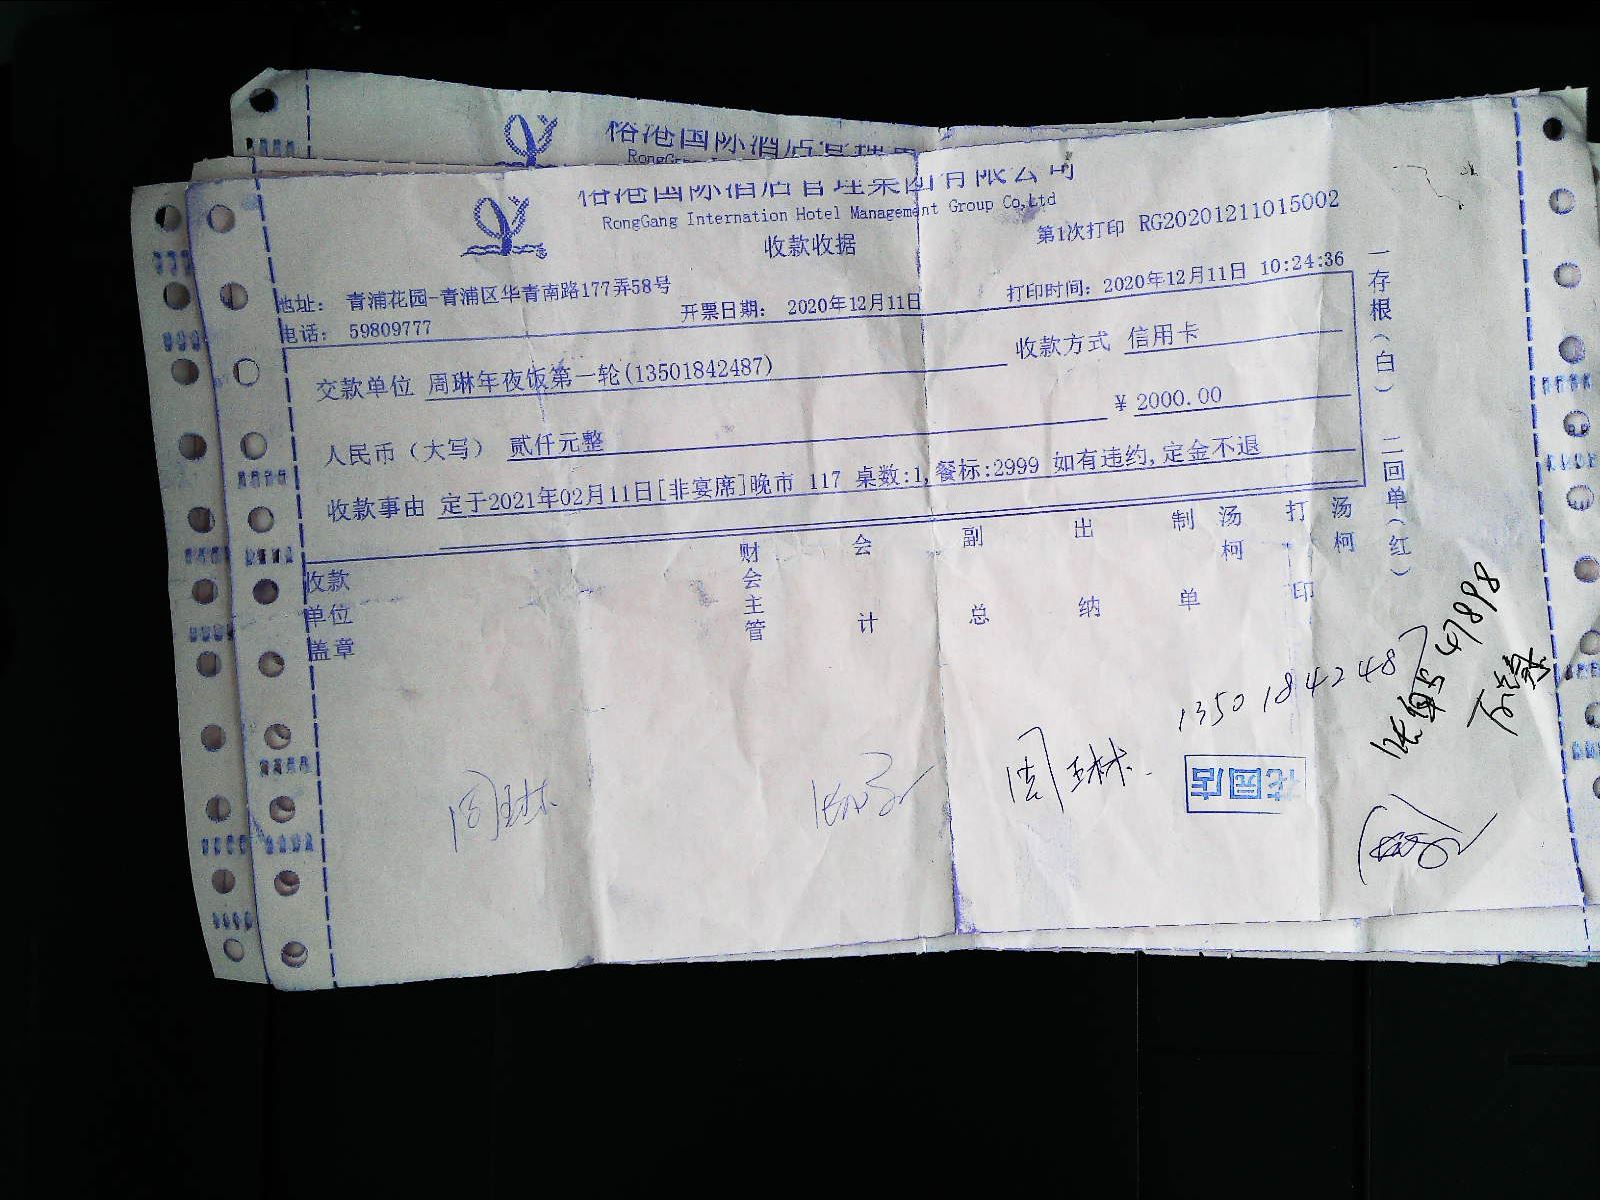 裕港国际酒店管理集
RongGang I
裕港国际酒店管理集团有限公司
RongGang Internation Hotel Management Group Co,Ltd
收款收据
第1次打印 RG20201211015002
地址: 青浦花园-青浦区华青南路177弄58号
电话: 59809777
开票日期: 2020年12月11日
打印时间: 2020年12月11日 10:24:36
交款单位 周琳年夜饭第一轮(13501842487)
收款方式 信用卡
人民币(大写) 贰仟元整
¥ 2000.00
收款事由 定于2021年02月11日[非宴席]晚市 117 桌数:1,餐标:2999 如有违约,定金不退
收款单位盖章
财会主管
会计
副总
出纳
制单
汤柯
打印
汤柯
一存根(白) 二回单(红)
13501842487
周琳
周琳
花园店
47898